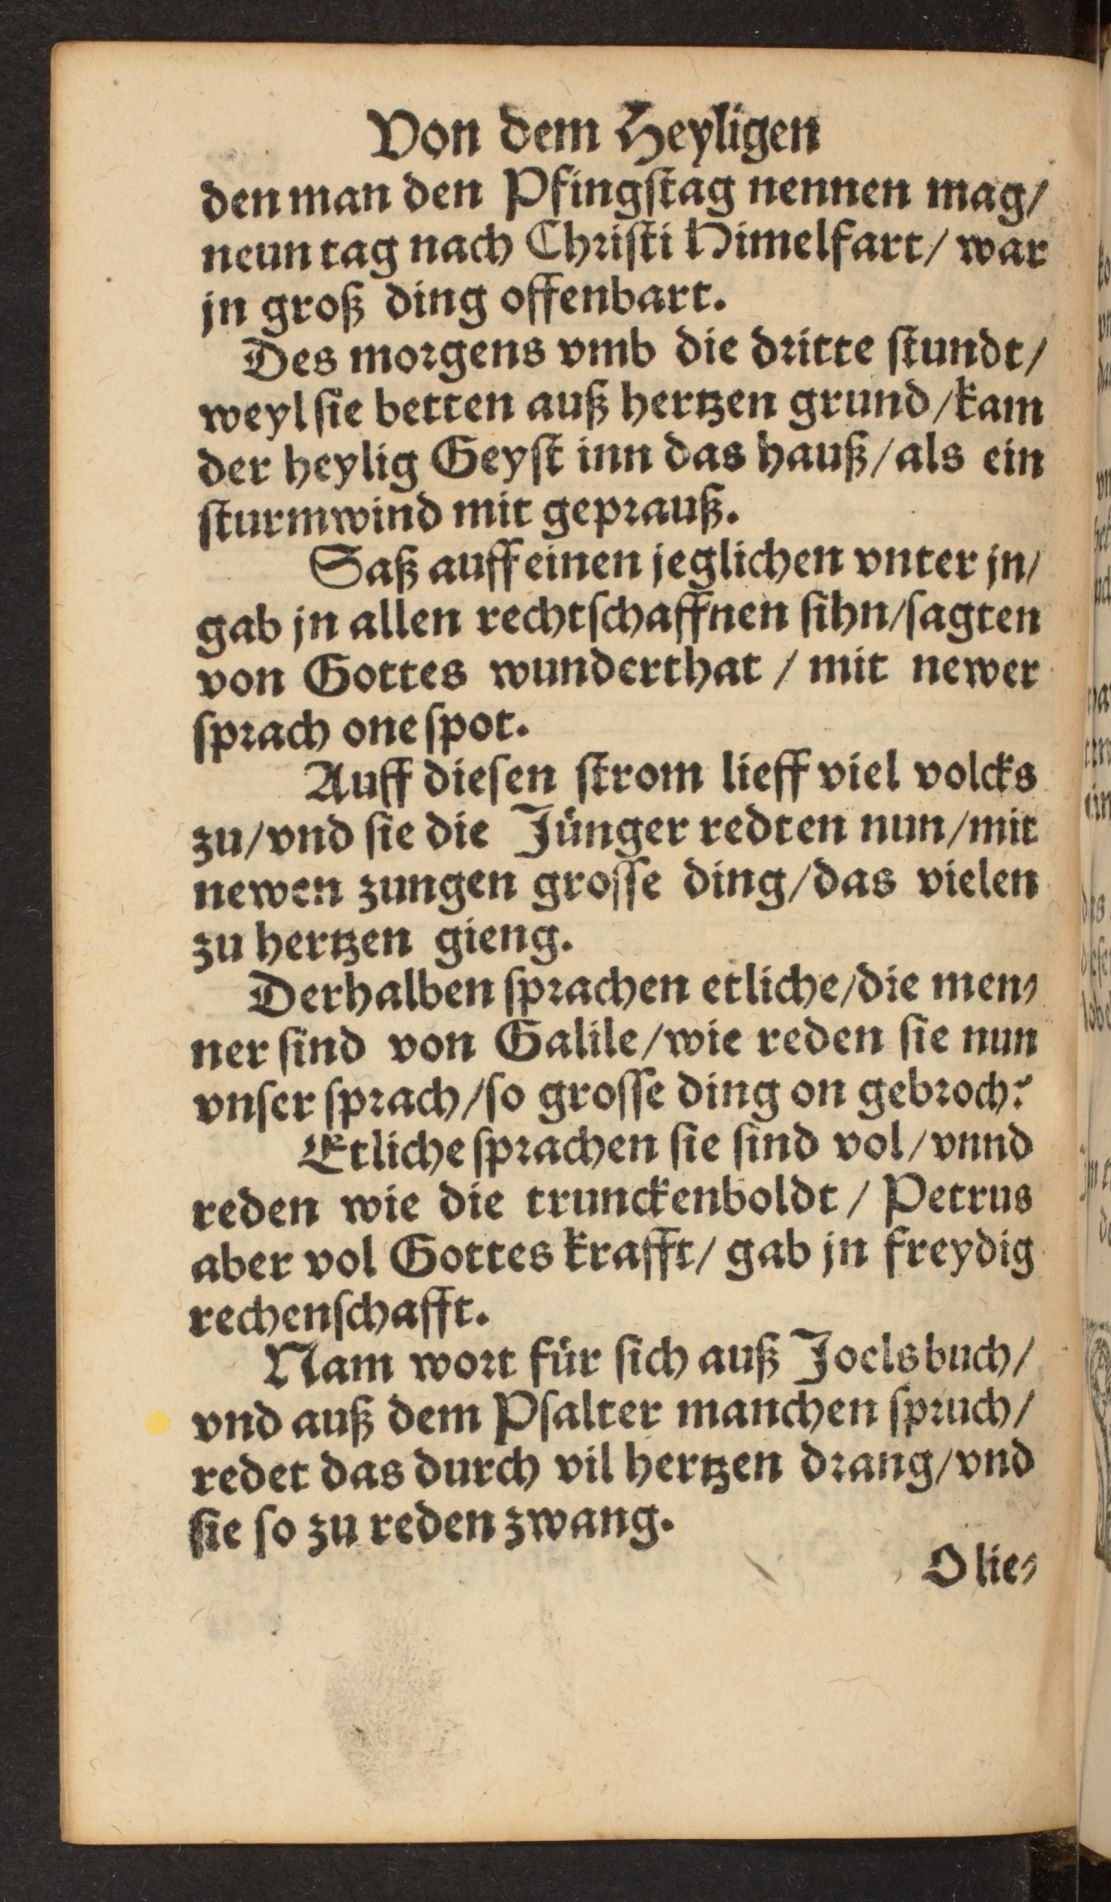 Von dem Heyligen
den man den Pfingstag nennen mag/
neun tag nach Christi Himelfart/ war
jn groß ding offenbart.
Des morgens vmb die dritte stundt/
weyl sie betten auß hertzen grund/kam
der heylig Geyst inn das hauß/als ein
sturmwind mit geprauß.
Saß auff einen jeglichen vnter jn/
gab jn allen rechtschaffnen sihn/sagten
von Gottes wunderthat / mit newer
sprach one spot.
Auff diesen strom lieff viel volcks
zu/vnd sie die Jünger redten nun/mit
newen zungen grosse ding/das vielen
zu hertzen gieng.
Derhalben sprachen etliche/die men⸗
ner sind von Galile/wie reden sie nun
vnser sprach/so grosse ding on gebroch?
Etliche sprachen sie sind vol/vnnd
reden wie die trunckenboldt / Petrus
aber vol Gottes krafft/ gab jn freydig
rechenschafft.
Nam wort für sich auß Joelsbuch/
vnd auß dem Psalter manchen spruch/
redet das durch vil hertzen drang/vnd
sie so zu reden zwang.
O lie⸗